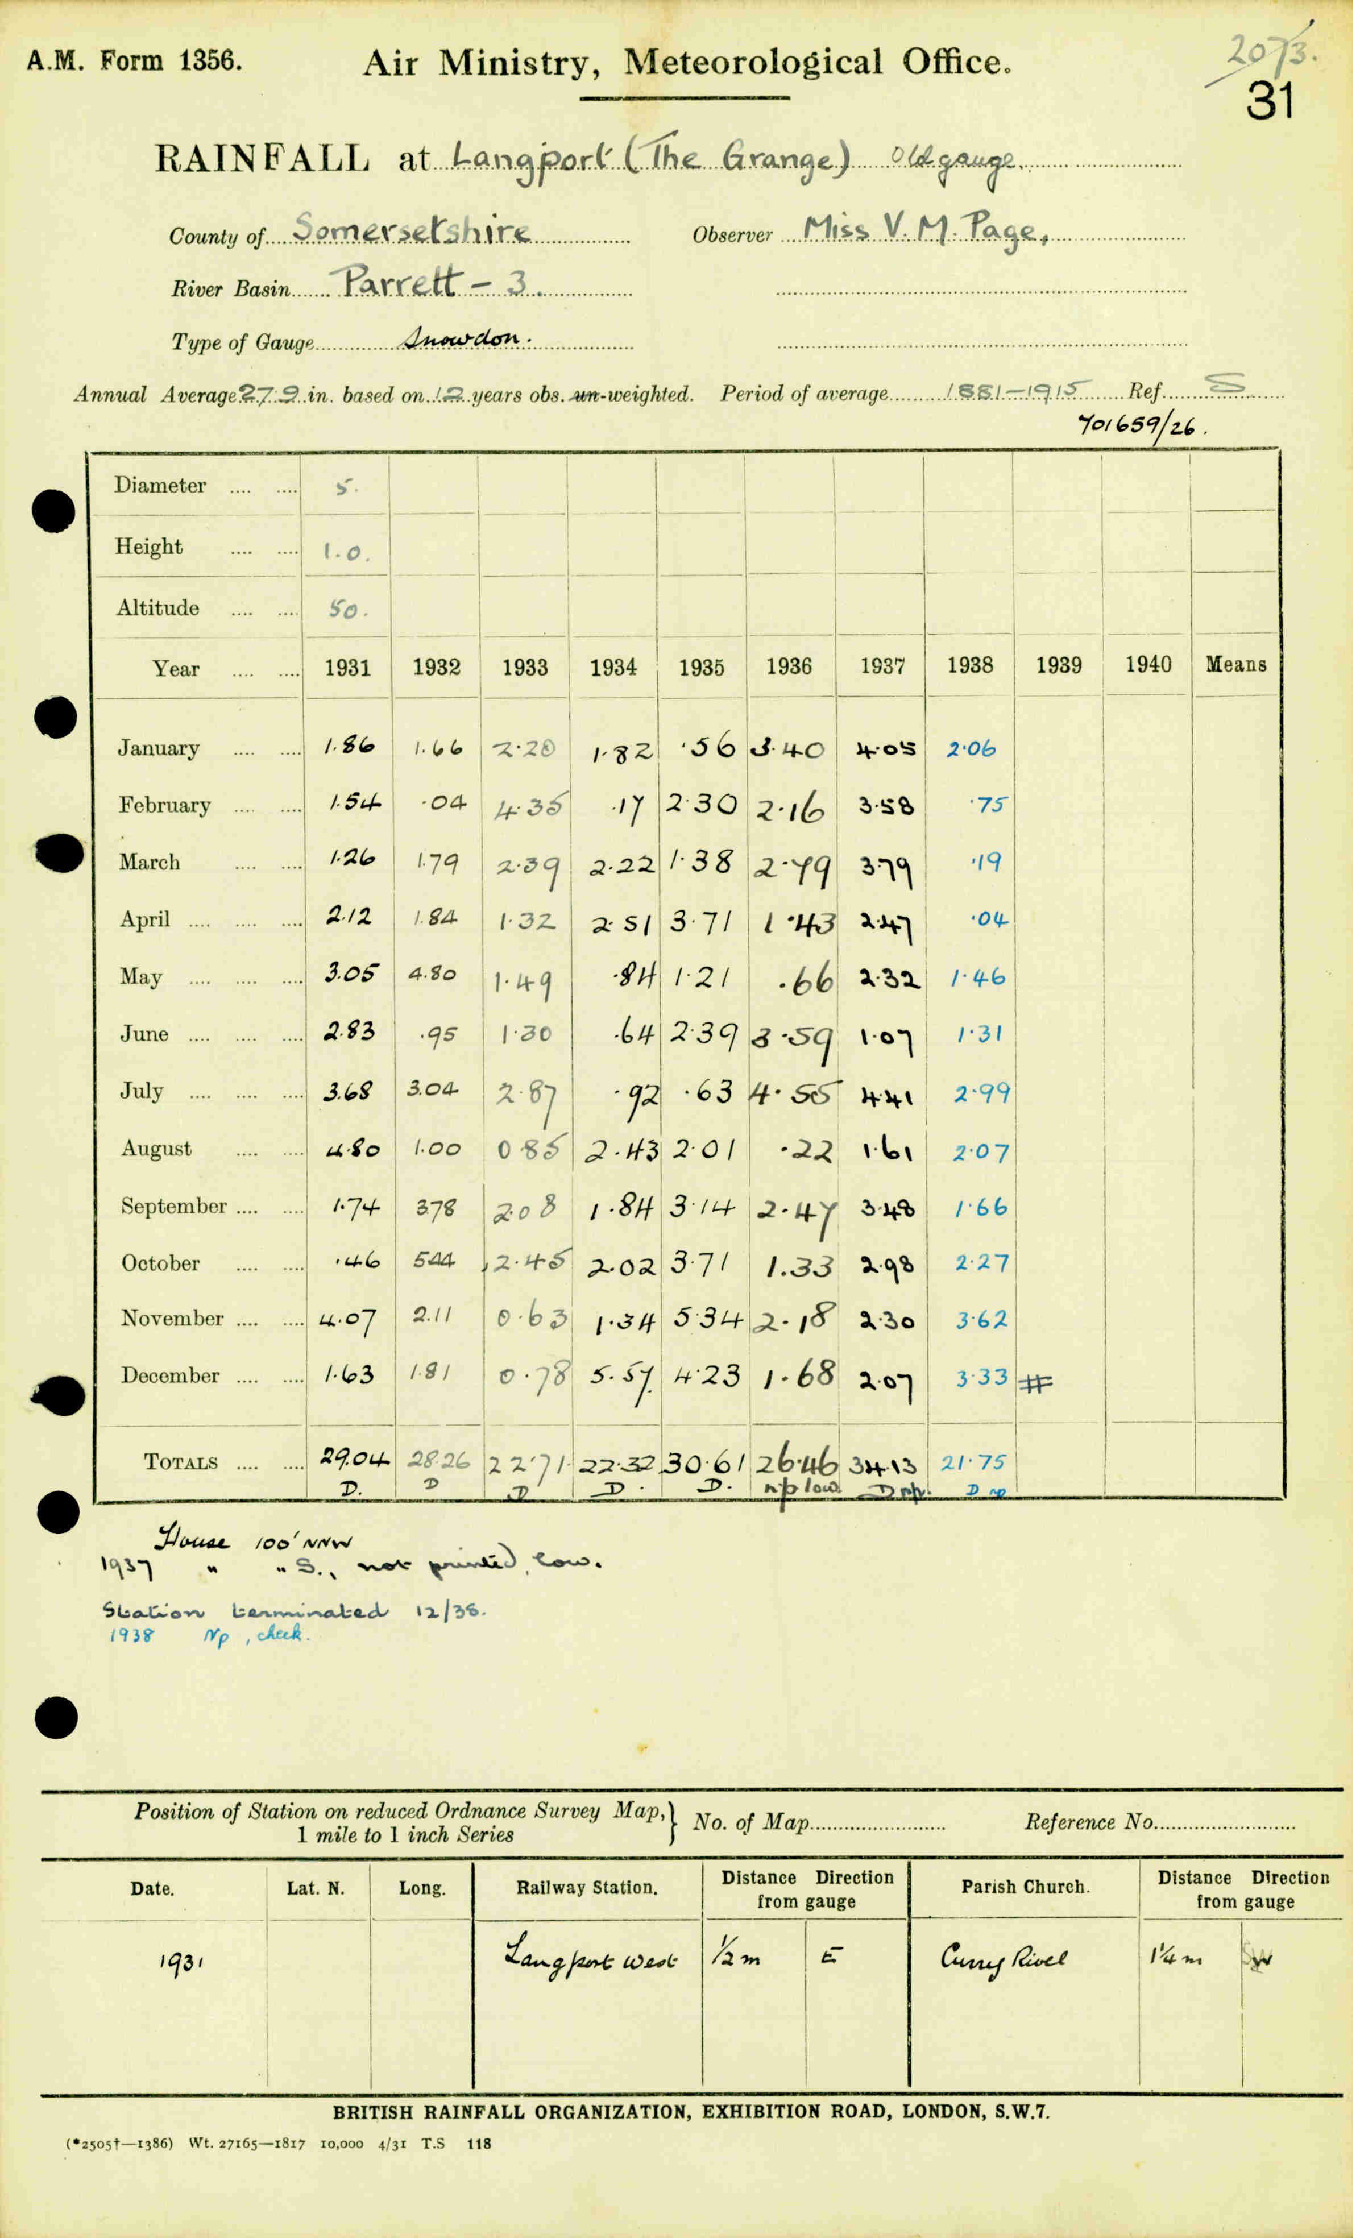 A.M. Form 1356. Air Ministry, Meteorological Office. 2073.
31
RAINFALL at Langport (The Grange) Old gauge.
County of Somersetshire Observer Miss V. M. Page,
River Basin Parrett - 3.
Type of Gauge Snowdon.
Annual Average 27.9 in. based on 12 years obs. un-weighted. Period of average 1881-1915 Ref. S
701659/26.
Diameter 5.
Height 1.0.
Altitude 50.
Year 1931 1932 1933 1934 1935 1936 1937 1938 1939 1940 Means
January 1.86 1.66 2.20 1.82 .56 3.40 4.05 2.06
February 1.54 .04 4.35 .17 2.30 2.16 3.58 .75
March 1.26 1.79 2.39 2.22 1.38 2.79 3.79 .19
April 2.12 1.84 1.32 2.51 3.71 1.43 2.47 .04
May 3.05 4.80 1.49 .84 1.21 .66 2.32 1.46
June 2.83 .95 1.30 .64 2.39 3.59 1.07 1.31
July 3.68 3.04 2.87 .92 .63 4.55 4.41 2.99
August 4.80 1.00 0.85 2.43 2.01 .22 1.61 2.07
September 1.74 3.78 2.08 1.84 3.14 2.47 3.48 1.66
October .46 5.44 2.45 2.02 3.71 1.33 2.98 2.27
November 4.07 2.11 0.63 1.34 5.34 2.18 2.30 3.62
December 1.63 1.81 0.78 5.57 4.23 1.68 2.07 3.33 #
TOTALS 29.04 28.26 22.71 22.32 30.61 26.46 34.13 21.75
D. D D D. D. n/p low. D n/p. D np
House 100' NNW
1937 " " S., not printed, low.
Station terminated 12/38.
1938 Np, check.
Position of Station on reduced Ordnance Survey Map, } No. of Map Reference No.
1 mile to 1 inch Series
Date. Lat. N. Long. Railway Station. Distance Direction from gauge Parish Church. Distance Direction from gauge
1931 Langport West 1/2 m E Curry Rivel 1 1/4 m SW
BRITISH RAINFALL ORGANIZATION, EXHIBITION ROAD, LONDON, S.W.7.
(*2505†—1386) Wt. 27165—1817 10,000 4/31 T.S 118